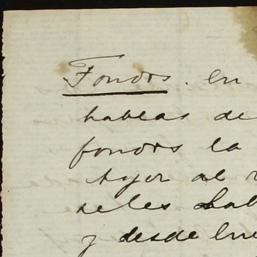 Fondos. en
hablas de
fondos la
Ayer al
seles hab
y desde lue